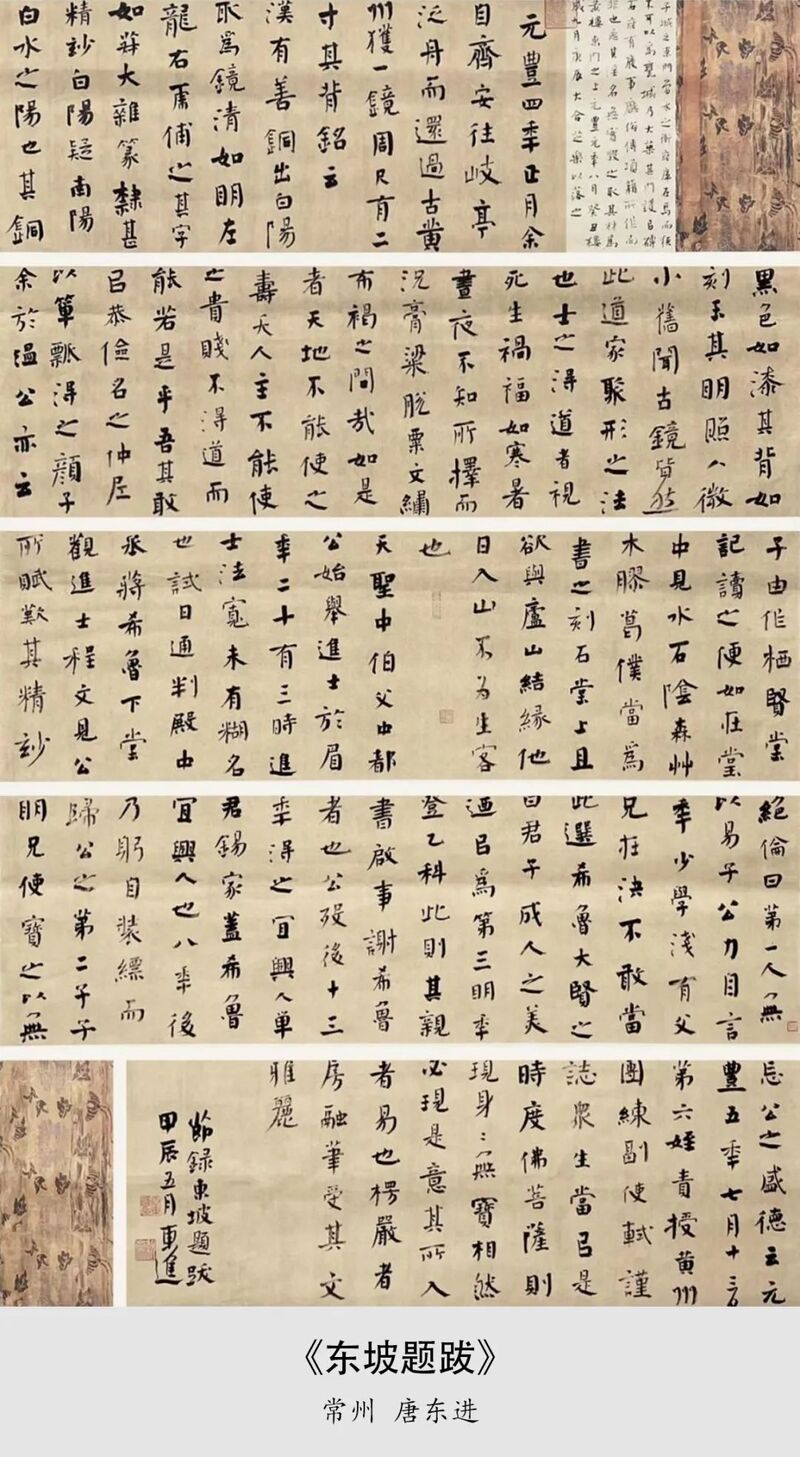 子城之東門當水之衝府庫在焉而
不可以為甕城乃大築其門護以磚
石府有廢事廳俗傳項籍所作而
非也惡其淫名無實毀之取其材為
黃樓東門之上元豐元年八月癸丑樓
成九月庚辰大合之樂以落之
元豐四年正月余
自齊安往岐亭
泛舟而還過古黃
州獲一鏡周尺有二
寸其背銘云
漢有善銅出白陽
取爲鏡清如明左
龍右虎俌之其字
如菽大雜篆隸甚
精妙白陽疑南陽
白水之陽也其銅
黑色如漆其背如
刻玉其明照人微
小舊聞古鏡皆然
此道家聚形之法
也士之得道者視
死生禍福如寒暑
晝夜不知所擇而
況膏粱脫粟文繡
布褐之間哉如是
者天地不能使之
壽夭人主不能使
之貴賤不得道而
能若是乎吾其敢
以恭儉名之仲尼
以簞瓢得之顏子
余於溫公亦云
子由作栖賢堂
記讀之便如在堂
中見水石陰森艸
木膠葛僕當爲
書之刻石堂上且
欲與廬山結緣他
日入山不爲生客
也
天聖中伯父中都
公始舉進士於眉
年二十有三時進
士法寬未有糊名
也試日通判殿中
丞蔣希魯下堂
觀進士程文見公
所賦歎其精妙
絕倫曰第一人無
以易子公力自言
年少學淺有父
兄在決不敢當
此選希魯大賢之
曰君子成人之美
迺以爲第三明年
登乙科此則其親
書啟事謝希魯
者也公歿後十三
年得之宜興人單
君錫家蓋希魯
宜興人也八年後
乃躬自裝縹而
歸公之第二子子
明兄使寶之以無
忘公之盛德云元
豐五年七月十三日
第六姪責授黃州
團練副使軾謹
誌衆生當以是
時度佛菩薩則
現身﹕無實相然
必現是意其所入
者易也楞嚴者
房融筆受其文
雅麗
節錄東坡題跋
甲辰五月東進
《东坡题跋》
常州 唐东进